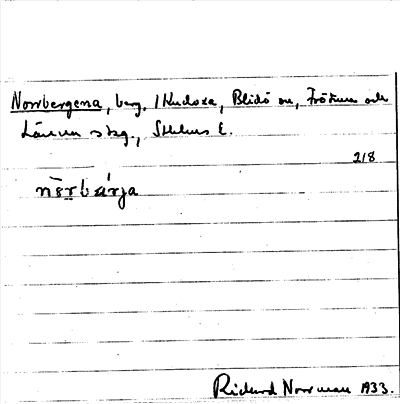 Norrbergena, berg, i Kudoxa, Blidö sn, Frötuna och
Länna skg., Sthlms l.
218
nòrbárja
Rickard Norrman 1933.